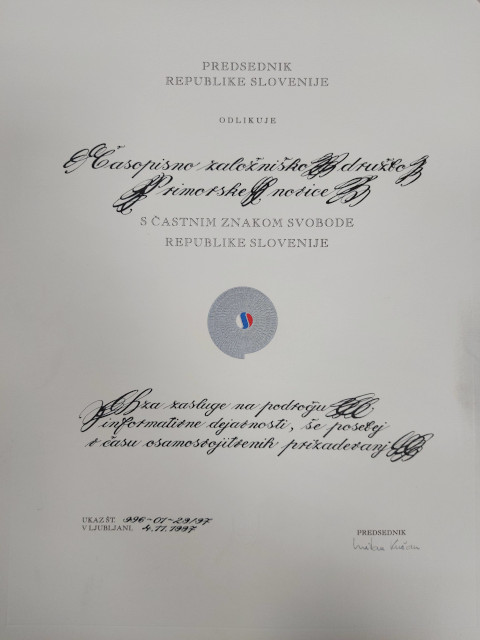 PREDSEDNIK
REPUBLIKE SLOVENIJE
ODLIKUJE
Časopisno založniško družbo
Primorske novice
S ČASTNIM ZNAKOM SVOBODE
REPUBLIKE SLOVENIJE
za zasluge na področju
informativne dejavnosti, še posebej
v času osamosvojitvenih prizadevanj
UKAZ ŠT. 996-01-29/97
V LJUBLJANI, 4.11.1997
PREDSEDNIK
Milan Kučan